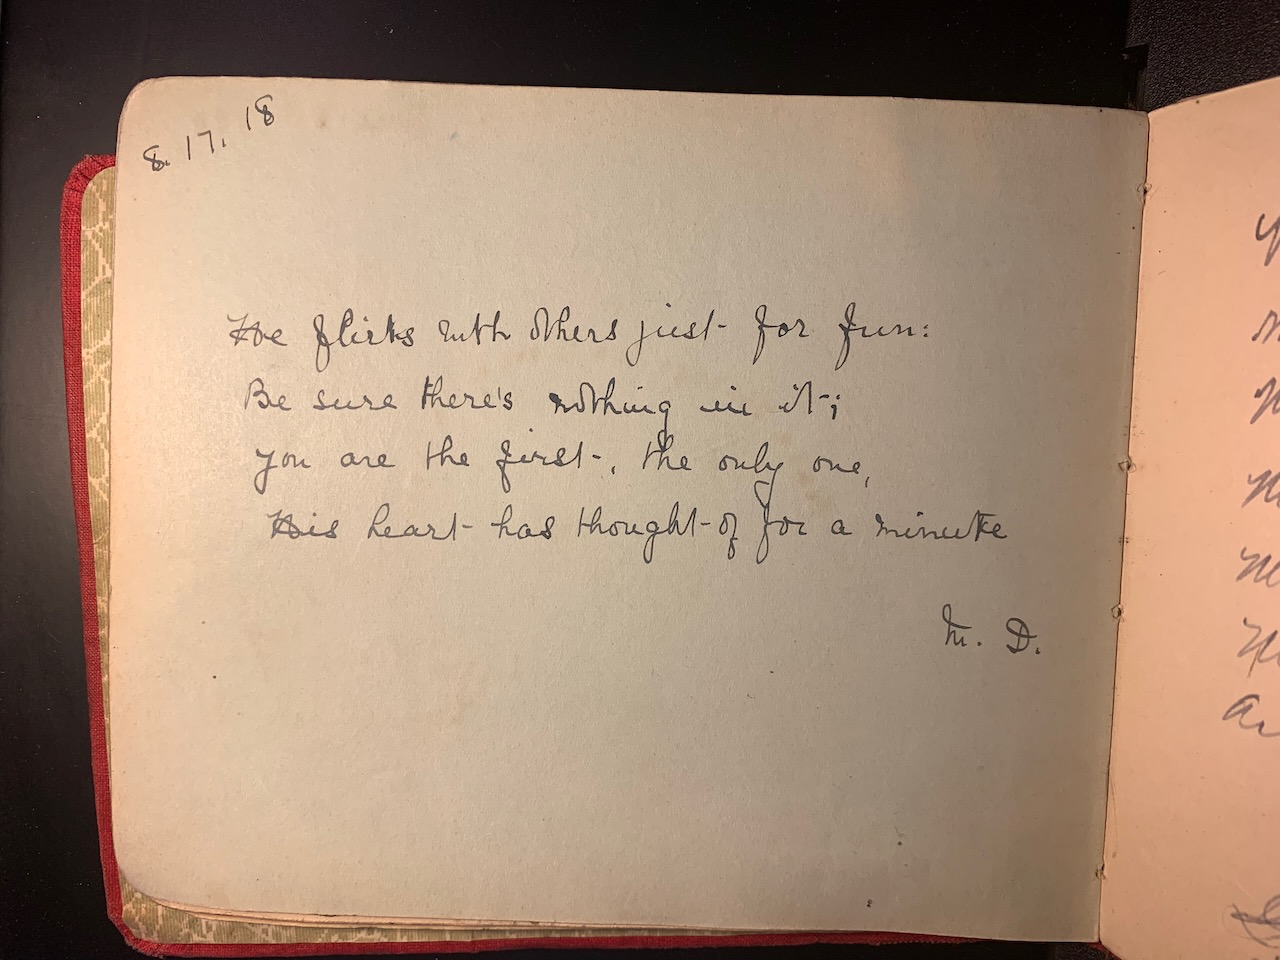 8. 17. 18
He flirts with others just for fun:
Be sure there's nothing in it;
You are the first, the only one,
His heart has thought of for a minute
M. D.